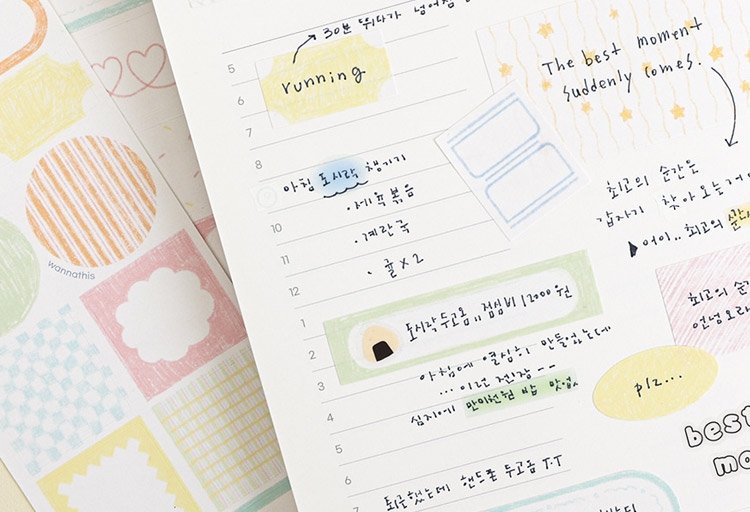 30분 뛰다가 넘어짐
running
5
6
7
8
아침 도시락 챙기기
9
· 제육볶음
10
· 계란국
11
· 귤 x 2
12
1
도시락 두고옴,, 점심비 12000원
2
아침에 열심히 만들었는데
3
... 이런 젠장 - -
심지에 만이천원 밥 맛없
4
5
6
퇴근했는데 핸드폰 두고옴 T.T
7
The best moment
suddenly comes.
최고의 순간은
갑자기 찾아오는거
어이.. 최고의 순간
최고의 순
언넝오라
plz...
best
mo
wannathis